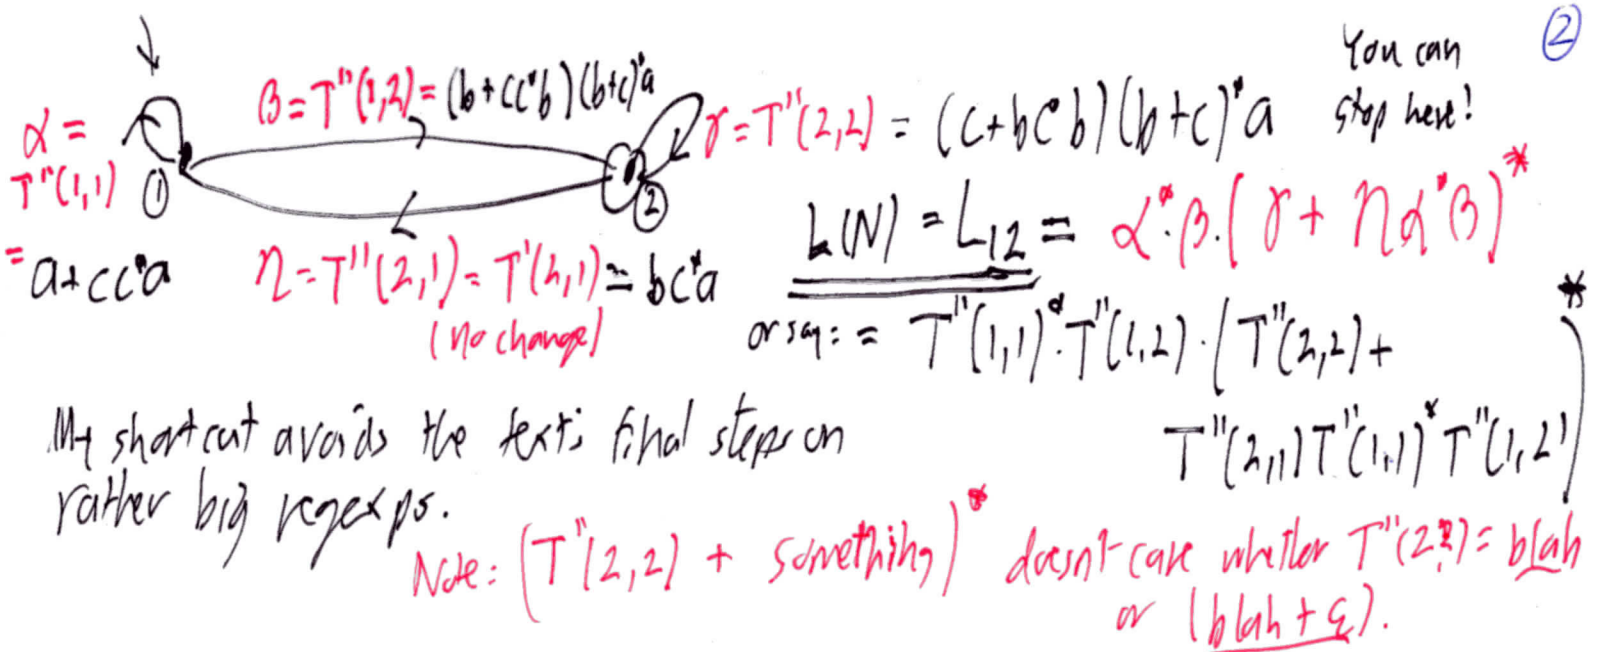 ②
You can
stop here!
β = T''(1,2) = (b+cc*b)(b+c)*a
γ = T''(2,2) = (c+bc*b)(b+c)*a
α =
T''(1,1)
= a+cc*a
①
②
η = T''(2,1) = T'(2,1) = bc*a
(no change)
L(N) = L₁₂ = α*·β·(γ + ηα*β)*
or say: = T''(1,1)*·T''(1,2)·(T''(2,2)+
T''(2,1)T''(1,1)*T''(1,2))*
My shortcut avoids the text's final steps on
rather big regexps.
Note: (T''(2,2) + something)* doesn't care whether T''(2,2) = blah
or (blah + ε).